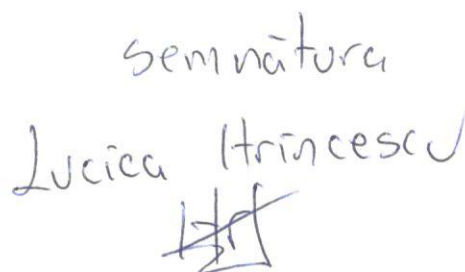 semnătura
Lucica Hrincescu